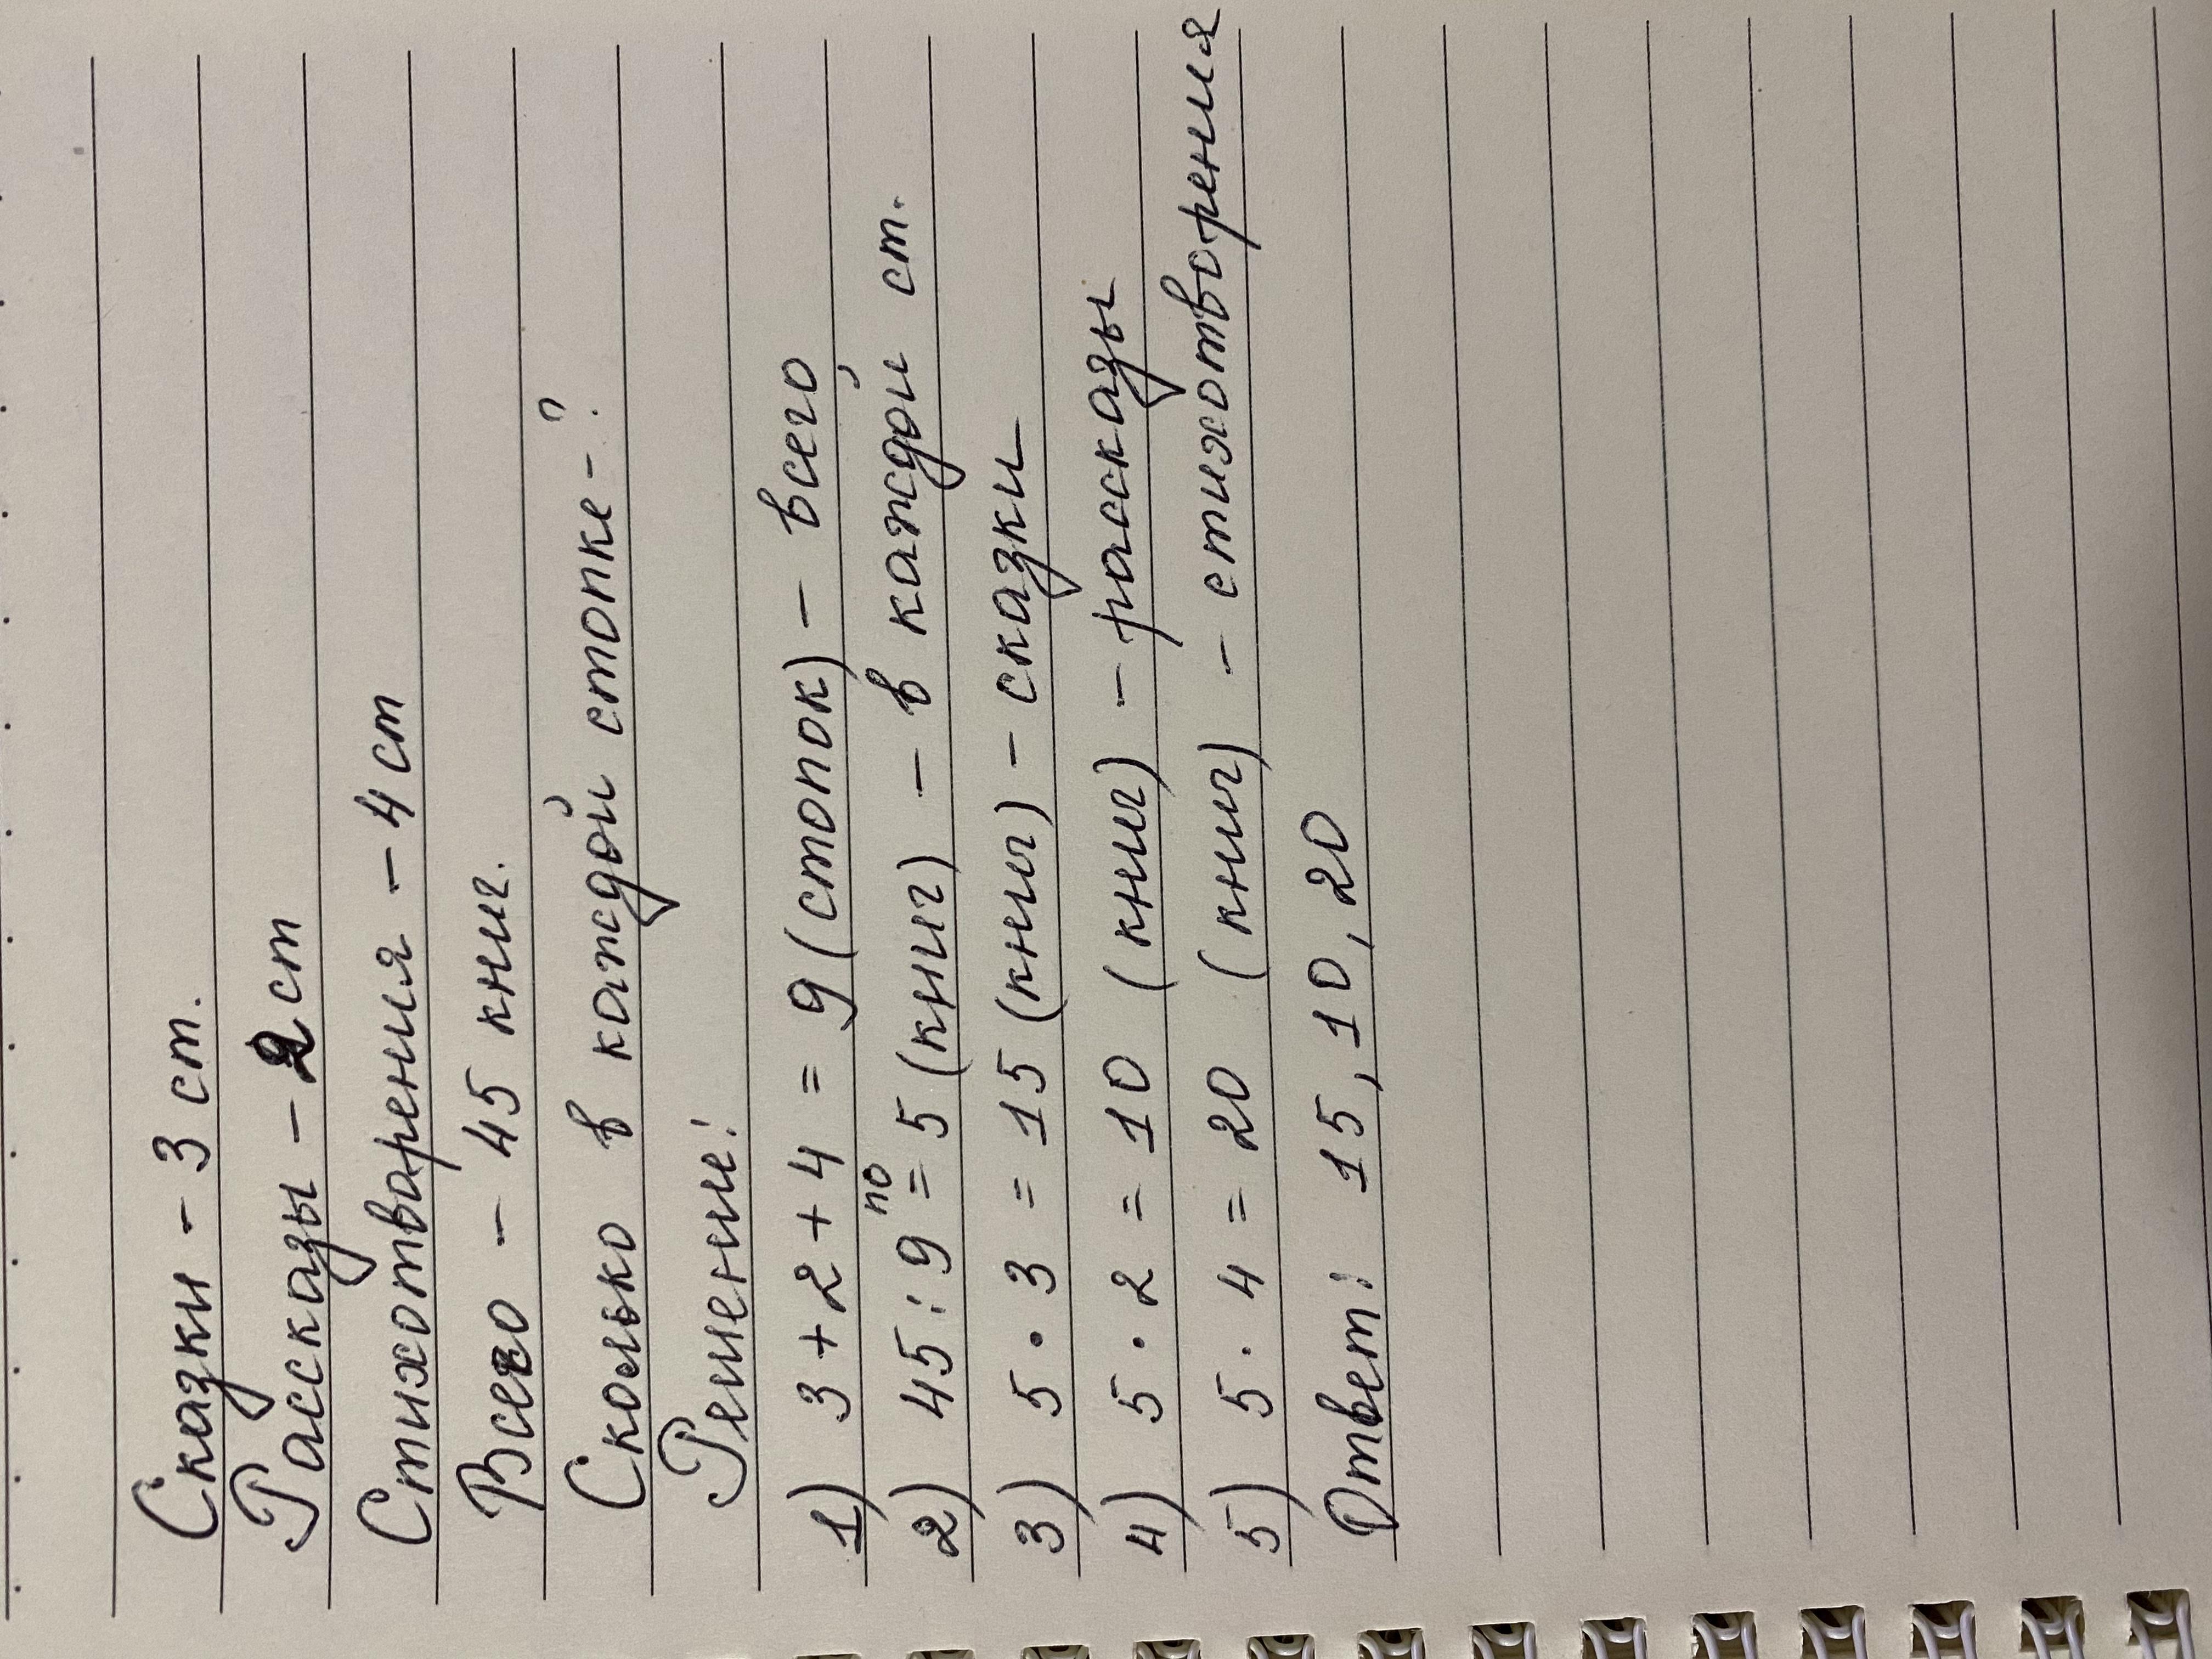 Сказки - 3 ст.
Рассказы - 2 ст
Стихотварения - 4 ст
Всего - 45 книг.
Сколько в каждой стопке - ?
Решение:
1) 3 + 2 + 4 = 9 (стопок) - всего
2) 45 : 9 = по 5 (книг) - в каждой ст.
3) 5 · 3 = 15 (книг) - сказки
4) 5 · 2 = 10 (книг) - рассказы
5) 5 · 4 = 20 (книг) - стихотворения
Ответ: 15, 10, 20